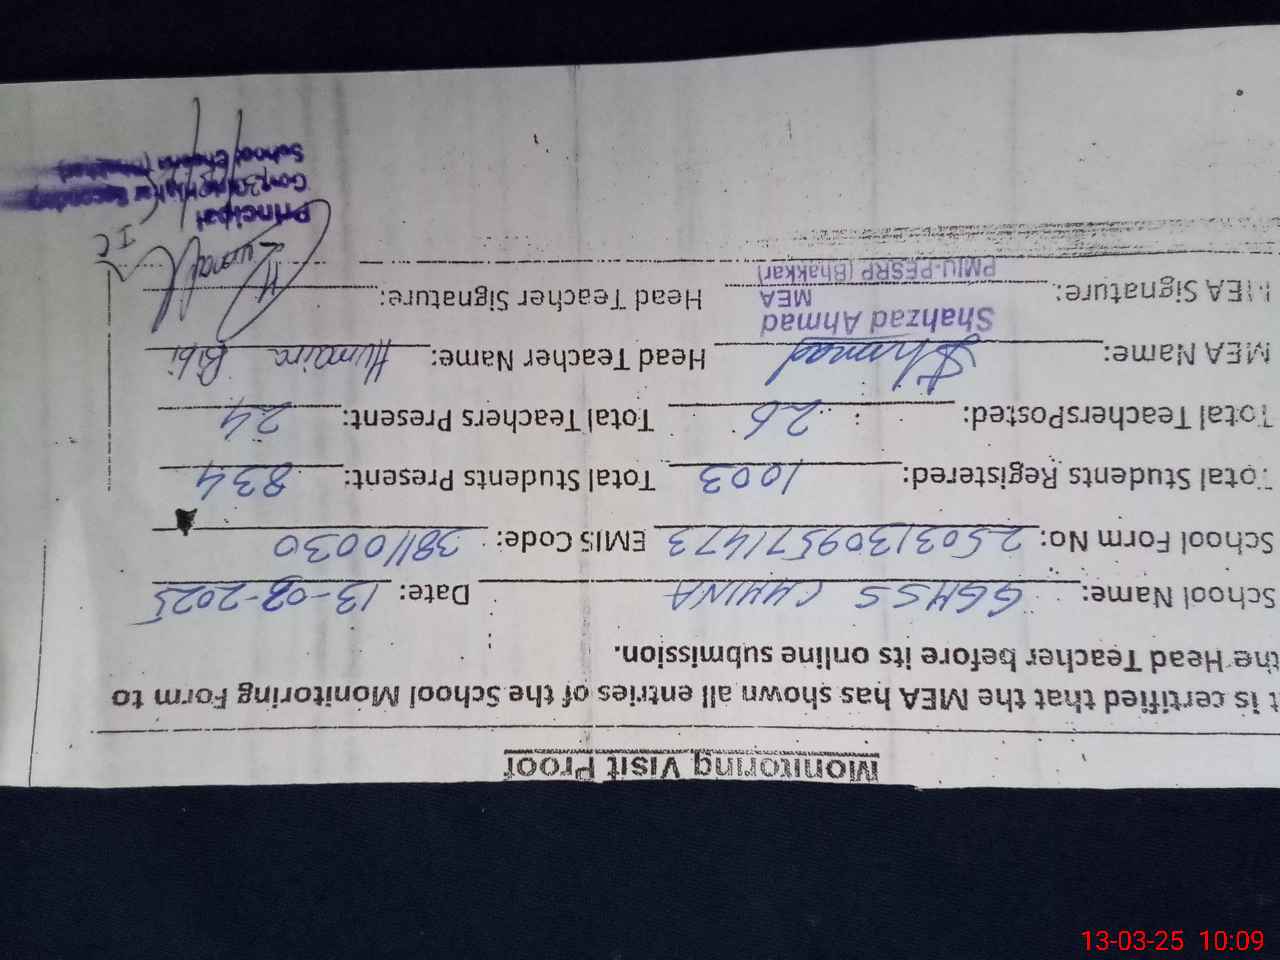 Monitoring Visit Proof
t is certified that the MEA has shown all entries of the School Monitoring Form to
the Head Teacher before its online submission.
School Name: GGHSS CHHINA Date: 13-03-2025
School Form No: 25031309571473 EMIS Code: 38110030
Total Students Registered: 1003 Total Students Present: 834
Total TeachersPosted: 26 Total Teachers Present: 24
MEA Name: Ahmad Head Teacher Name: Humaira Bibi
Shahzad Ahmad
MEA
MEA Signature: PMIU-PESRP (Bhakkar) Head Teacher Signature:
IC
Principal
Govt. Girls Higher Secondary
School Chhina (Bhakkar)
13-03-25 10:09